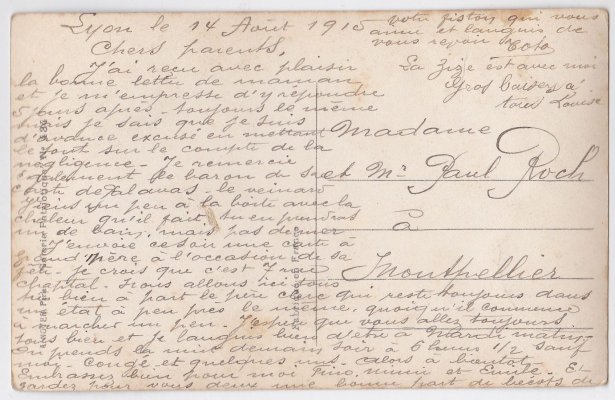 Lyon le 14 Août 1915
Chers parents,
J'ai reçu avec plaisir
la bonne lettre de maman
et je m'empresse d'y répondre
5 jours après - toujours le même
mais je sais que je suis
d'avance excusé en mettant
le tout sur le compte de la
négligence - Je remercie
également le baron de sa
carte de Palavas - le veinard
Tiens un peu à la boîte avec la
chaleur qu'il fait, tu en prendras
un de bain, mais pas de mer
J'envoie ce soir une carte à
Grand Mère à l'occasion de sa
fête - je crois que c'est 7 rue
Chaptal - Nous allons ici tous
très bien à part le père Clerc qui reste toujours dans
un état à peu près le même, quoiqu'il commence
à marcher un peu - J'espère que vous allez toujours
tous bien et je languis bien d'être à Mardi matin
On prends la nuit demain soir à 6 heures 1/2 sauf
moi - Congé et quelques uns - alors à bientôt
Embrassez bien pour moi Fino, Mimi et Emile - Et
gardez pour vous deux une bonne part de bécots de
votre fiston qui vous
aime et languis de
vous revoir Toto
La Zize est avec moi
Gros baisers à
tous Louise
Madame
et Mr Paul Roch
à
Montpellier